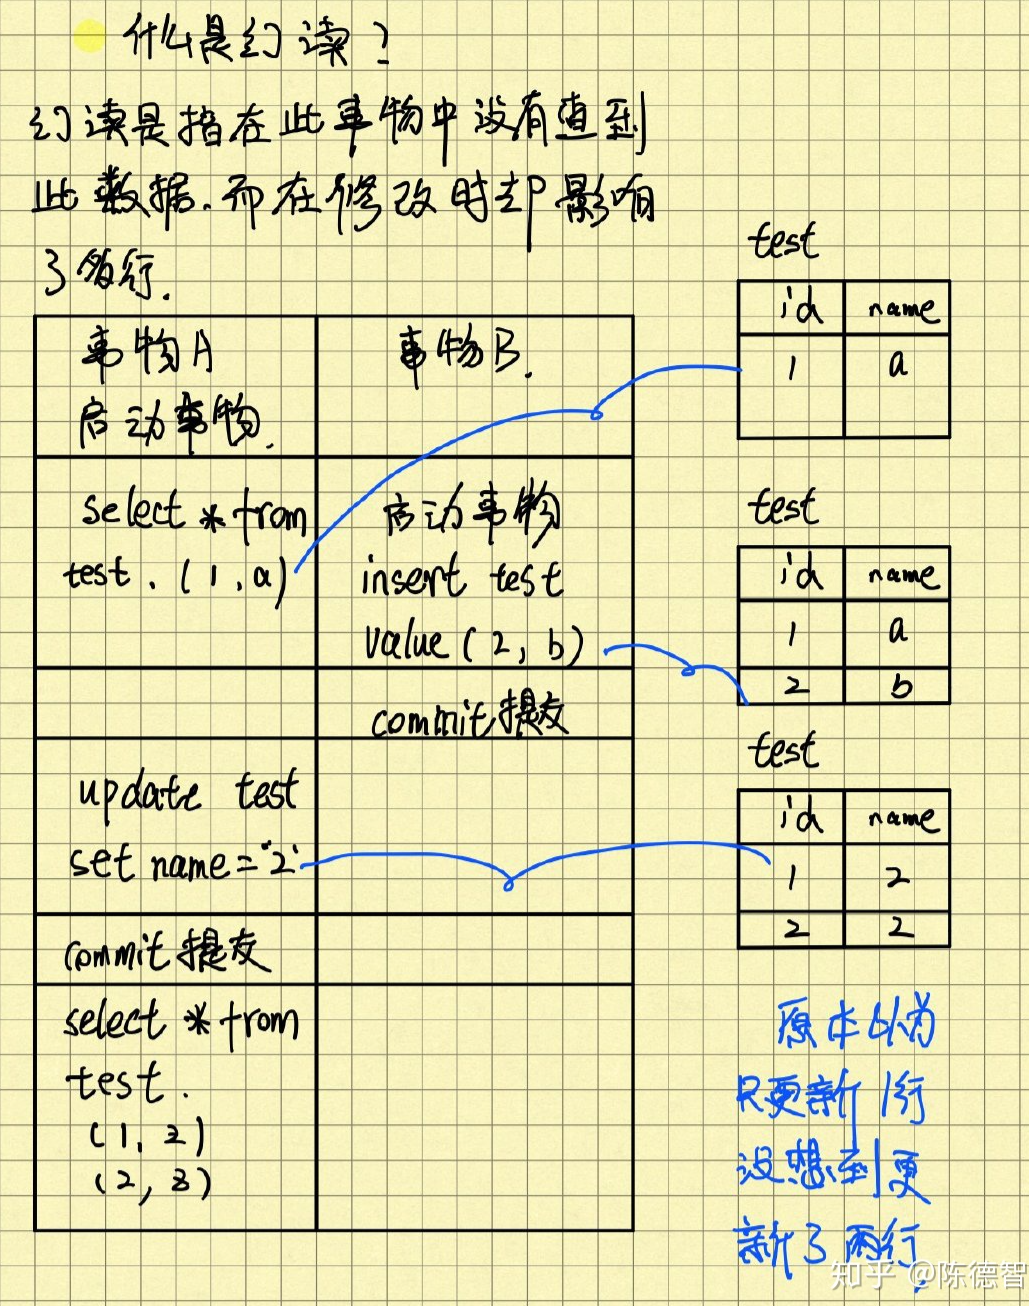 什么是幻读?
幻读是指在此事物中没有查到
此数据.而在修改时却影响
了多行.
事物A
启动事物.
事物B.
select * from
test.(1,a)
启动事物
insert test
value(2,b)
commit提交
update test
set name="2'
commit提交
select * from
test.
(1,2)
(2,2)
test
id name
1 a
test
id name
1 a
2 b
test
id name
1 2
2 2
原本以为
只更新1行
没想到更
新了两行,
知乎 @陈德智